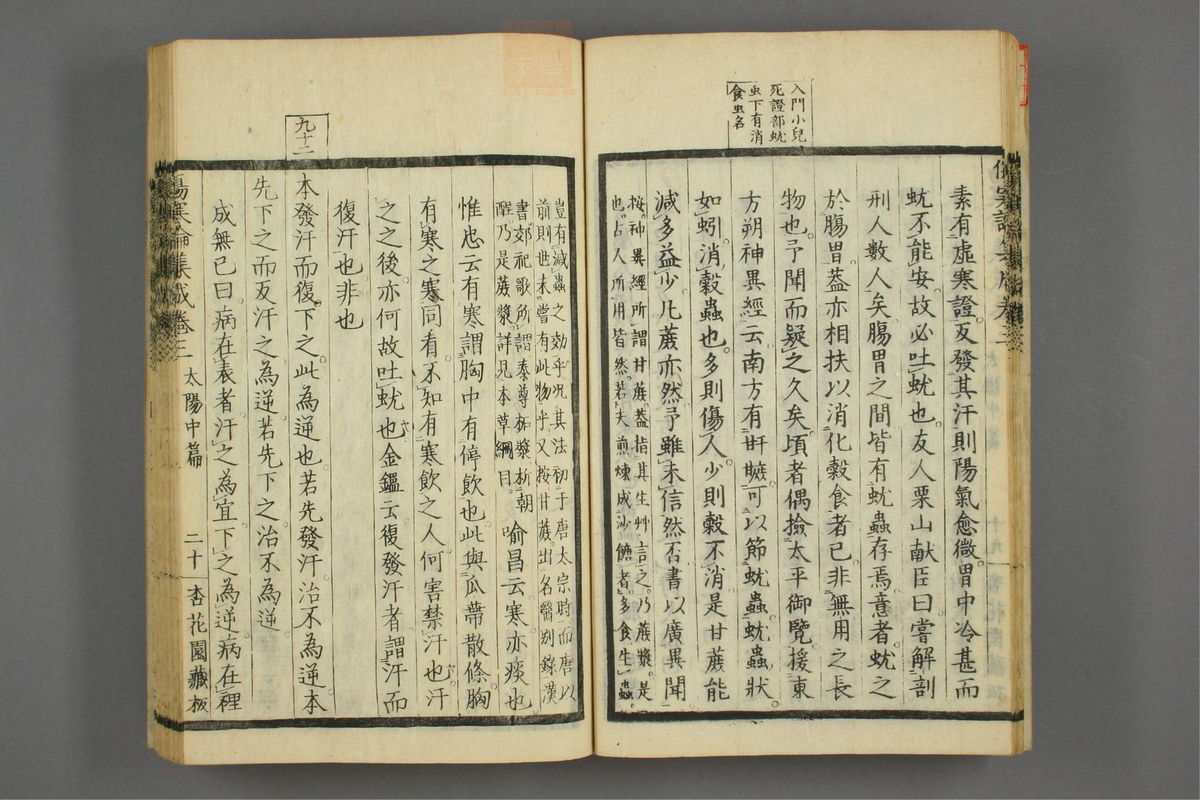 入門小兒
死證部蚘
虫下有消
食虫名
素有虛寒證反發其汗則陽氣愈微胃中冷甚而
蚘不能安故必吐蚘也友人栗山献臣曰嘗解剖
刑人數人矣腸胃之間皆有蚘蟲存焉意者蚘之
於腸胃葢亦相扶以消化穀食者已非無用之長
物也予聞而疑之久矣頃者偶撿太平御覽援東
方朔神異經云南方有㽏䗪可以節蚘蟲蚘蟲狀
如蚓消穀蟲也多則傷人少則穀不消是甘蔗能
減多益少凡蔗亦然予雖未信然否書以廣異聞
按神異經所謂甘蔗葢指其生艸言之乃蔗漿是
也占人所用皆然若夫煎煉成沙餹者多食生蟲
豈有減蟲之効乎况其法初于唐太宗時而唐以
前則世未嘗有此物乎又按甘蔗出名醫別錄漢
書郊祀歌所謂泰尊柘漿析朝
酲乃是蔗漿詳見本草綱目
喻昌云寒亦痰也
惟忠云有寒謂胸中有停飲也此與瓜蒂散條胸
有寒之寒同看不知有寒飲之人何害禁汗也汗
之之後亦何故吐蚘也金鑑云復發汗者謂汗而
復汗也非也
九十二
本發汗而復下之此為逆也若先發汗治不為逆本
先下之而反汗之為逆若先下之治不為逆
成無已曰病在表者汗之為宜下之為逆病在裡
傷寒論集成卷三
太陽中篇
二十
杏花園藏板